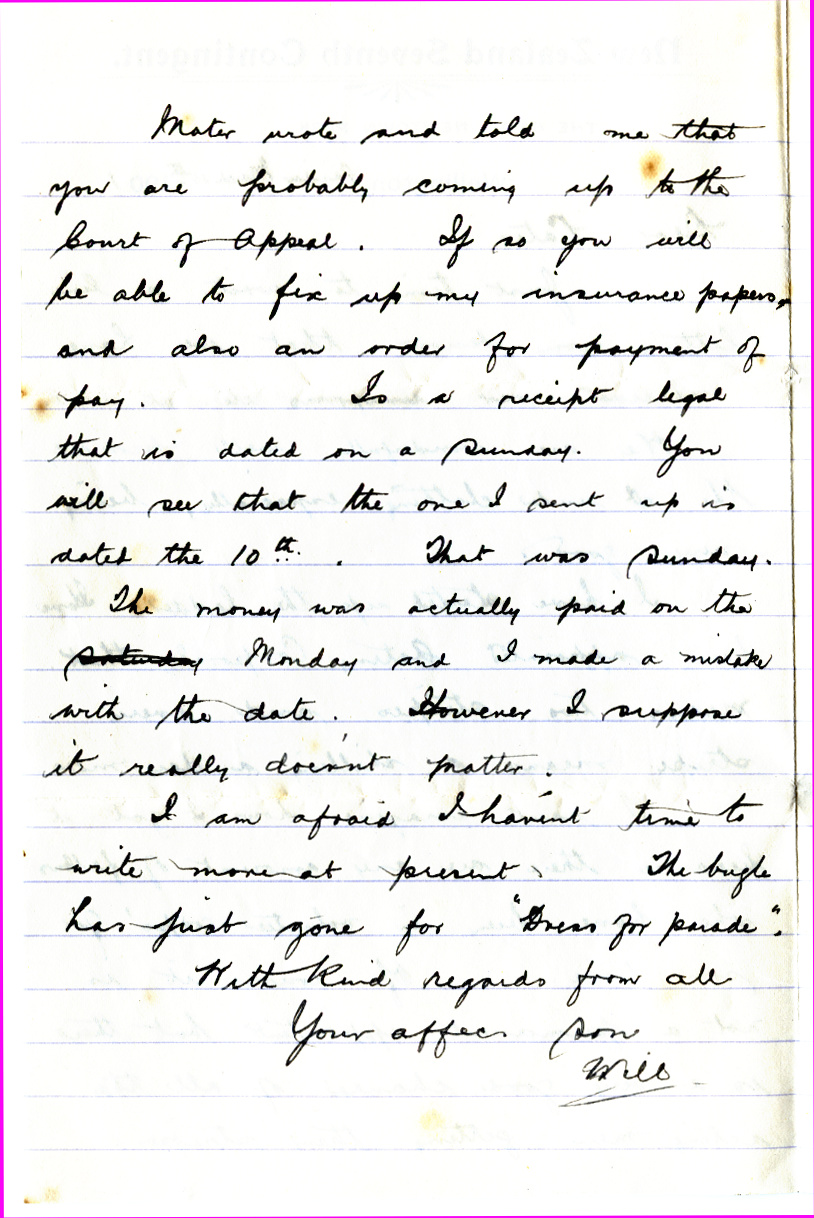 Mater wrote and told me that
you are probably coming up to the
Court of Appeal. If so you will
be able to fix up my insurance papers,
and also an order for payment of
pay. Is a receipt legal
that is dated on a Sunday. You
will see that the one I sent up is
dated the 10th. That was Sunday.
The money was actually paid on the
Saturday Monday and I made a mistake
with the date. However I suppose
it really doesn't matter.
I am afraid I haven't time to
write more at present. The bugle
has just gone for "Dress for parade".
With kind regards from all
Your affec. son
Will